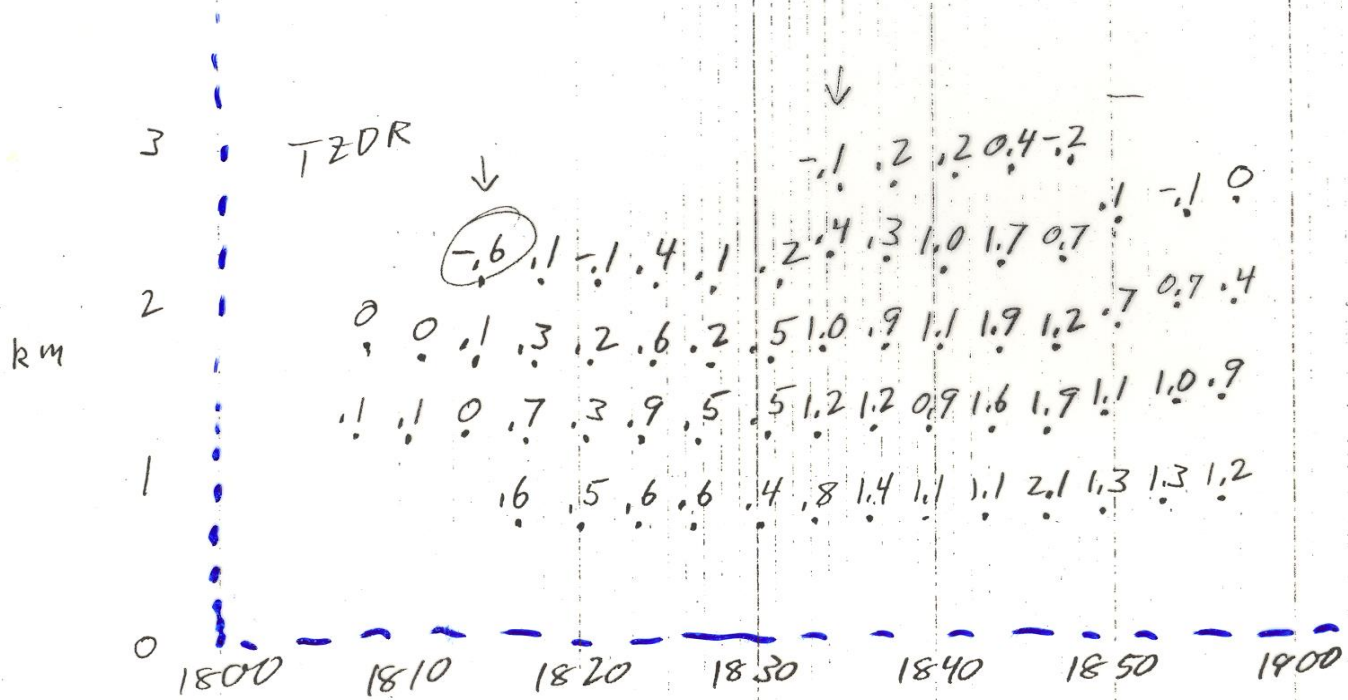 3 TZDR -.1 .2 .2 0.4 -.2
.1 -.1 0
-.6 .1 -.1 .4 .1 .2 .4 .3 1.0 1.7 0.7
2 0 0 .1 .3 .2 .6 .2 .5 1.0 .9 1.1 1.9 1.2 .7 0.7 .4
km
.1 .1 0 .7 .3 .9 .5 .5 1.2 1.2 0.9 1.6 1.9 1.1 1.0 .9
1 .6 .5 .6 .6 .4 .8 1.4 1.1 1.1 2.1 1.3 1.3 1.2
0
1800 1810 1820 1830 1840 1850 1900